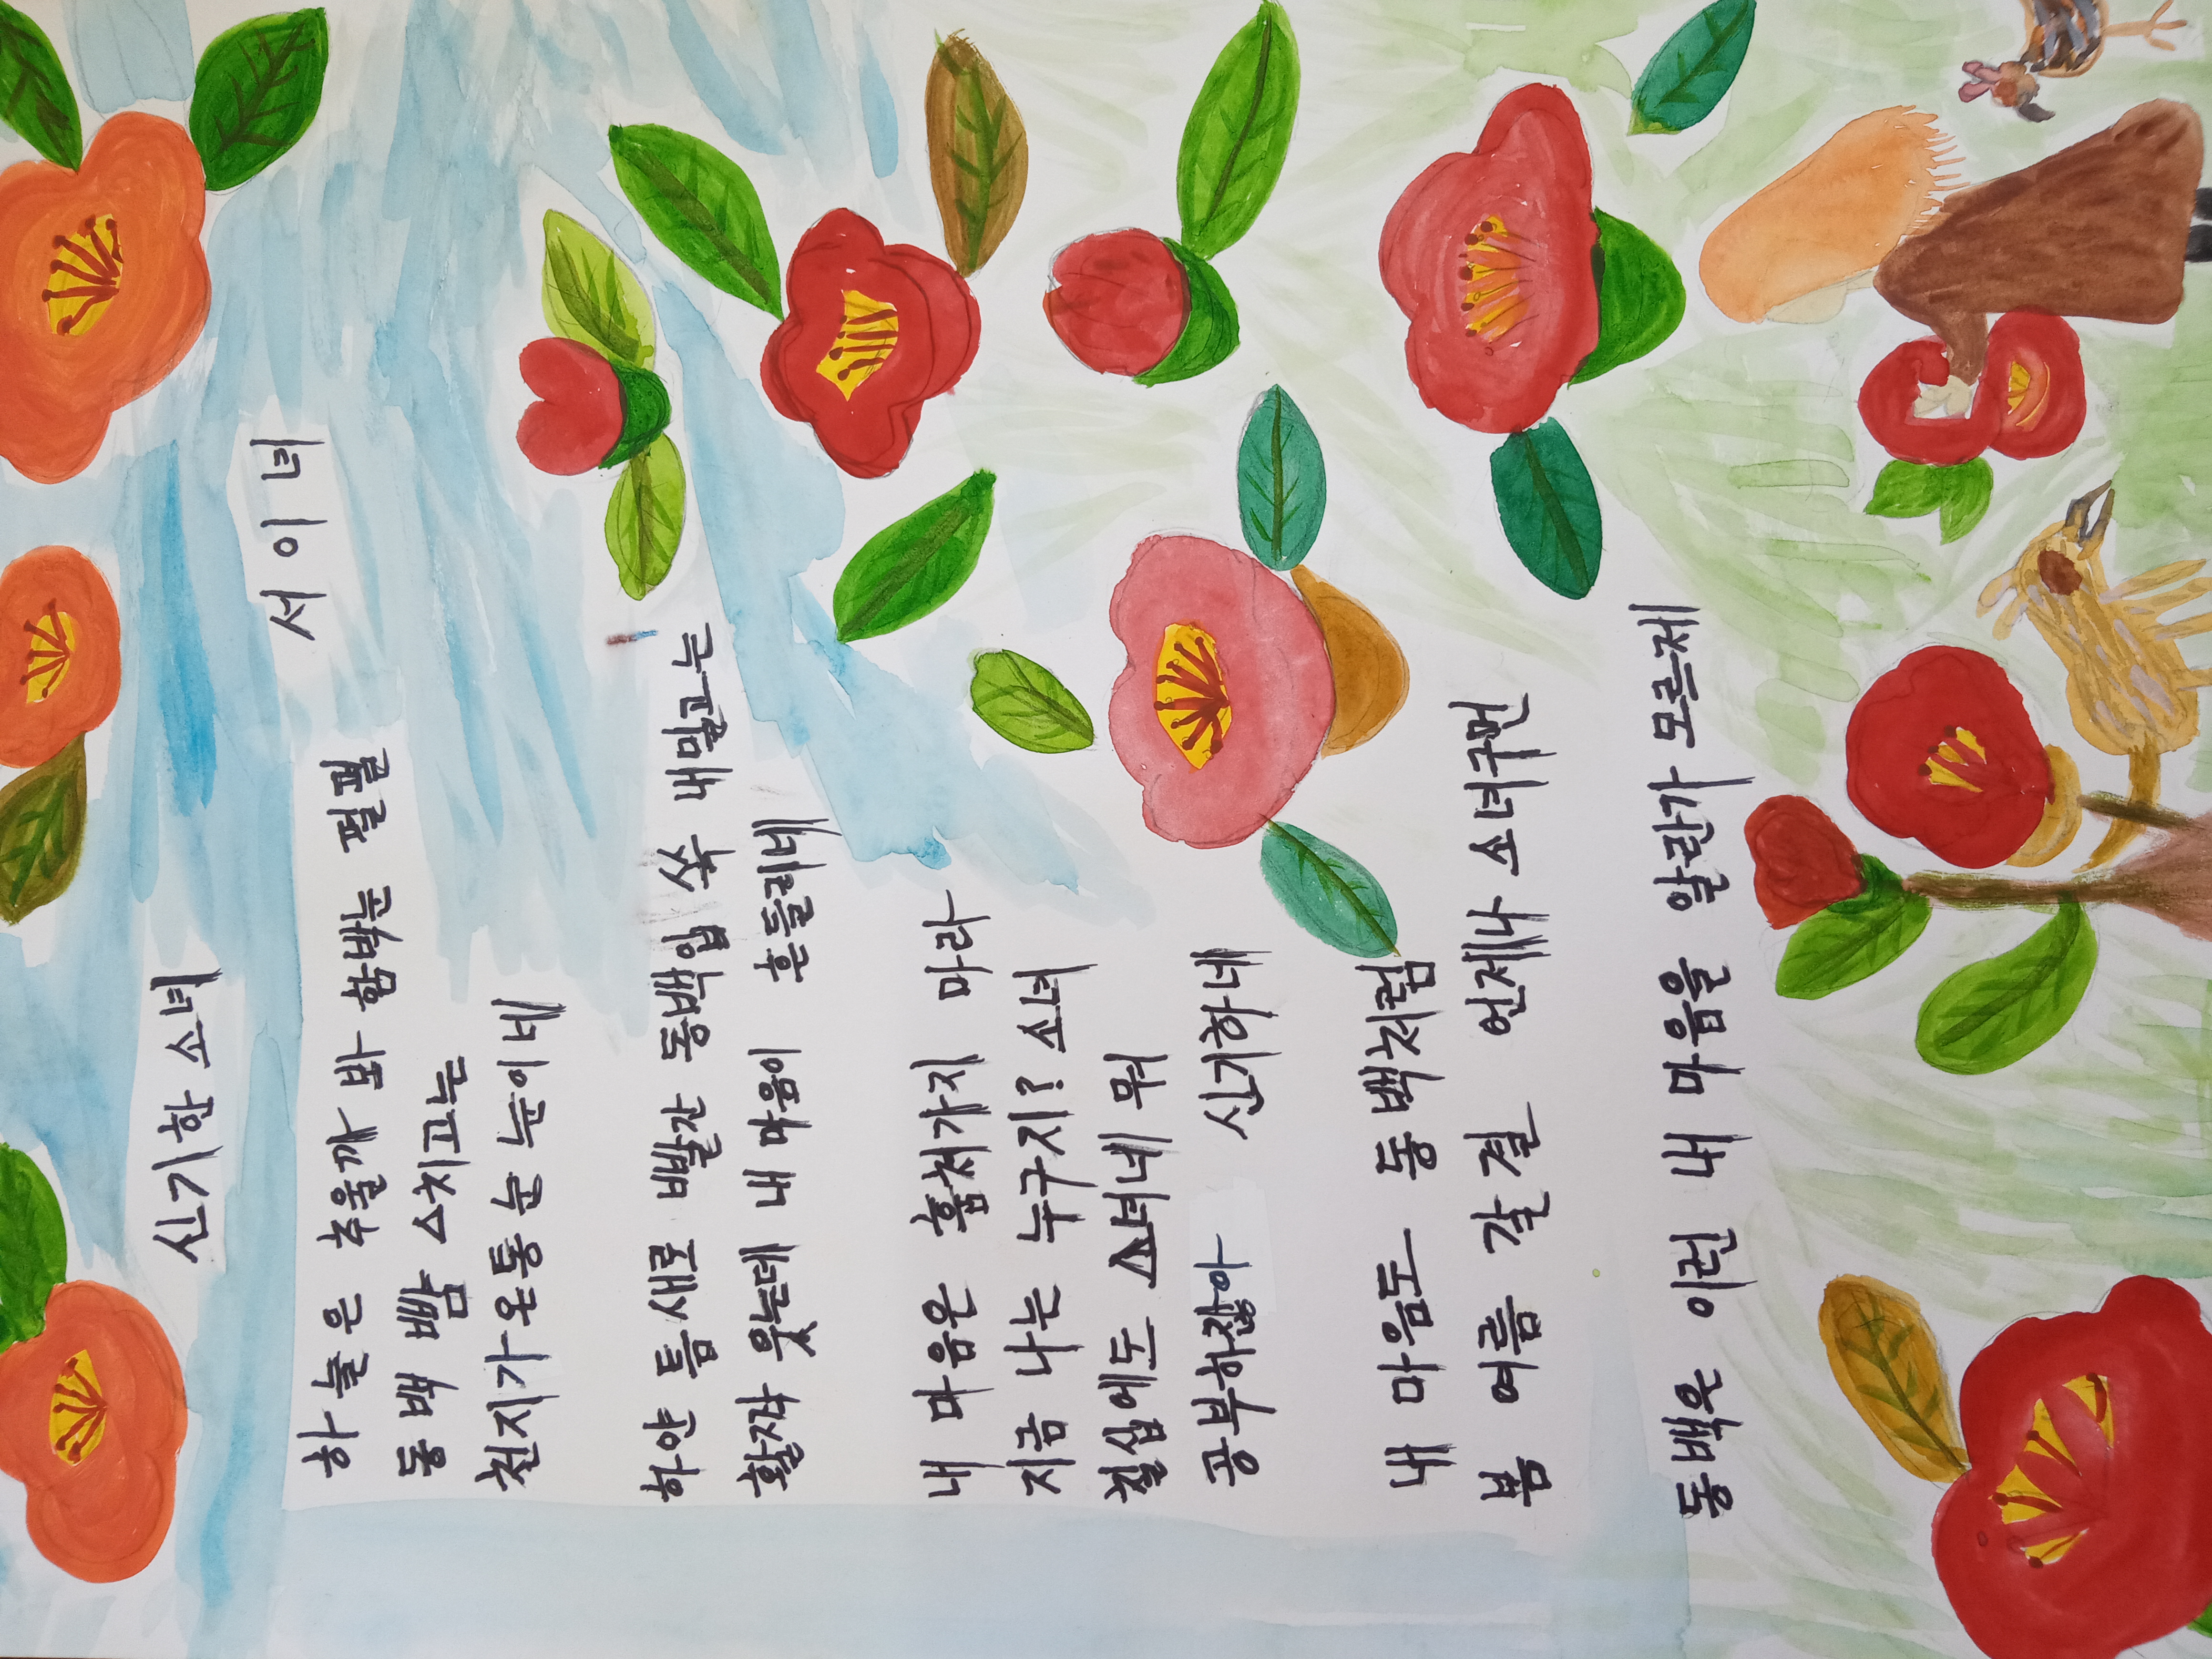 신기한 소녀
서이녀
하늘은 추울까 봐 함박눈 펄펄
동백 뺨 스치고는
천지가 온통 눈 눈이네
하얀 틈새로 빨간 동백입 쏙 내밀고는
활짝 웃는데 내 마음이 흔들리네
내 마음은 훔쳐가지 마라
지금 나는 누구지? 소녀
칠십에도 소녀네 뭐
공부하잖아 신기하네
내 마음도 동백처럼
봄 여름 갈 결 언제나 소녀구먼
동백은 이런 내 마음을 알란가 모르제